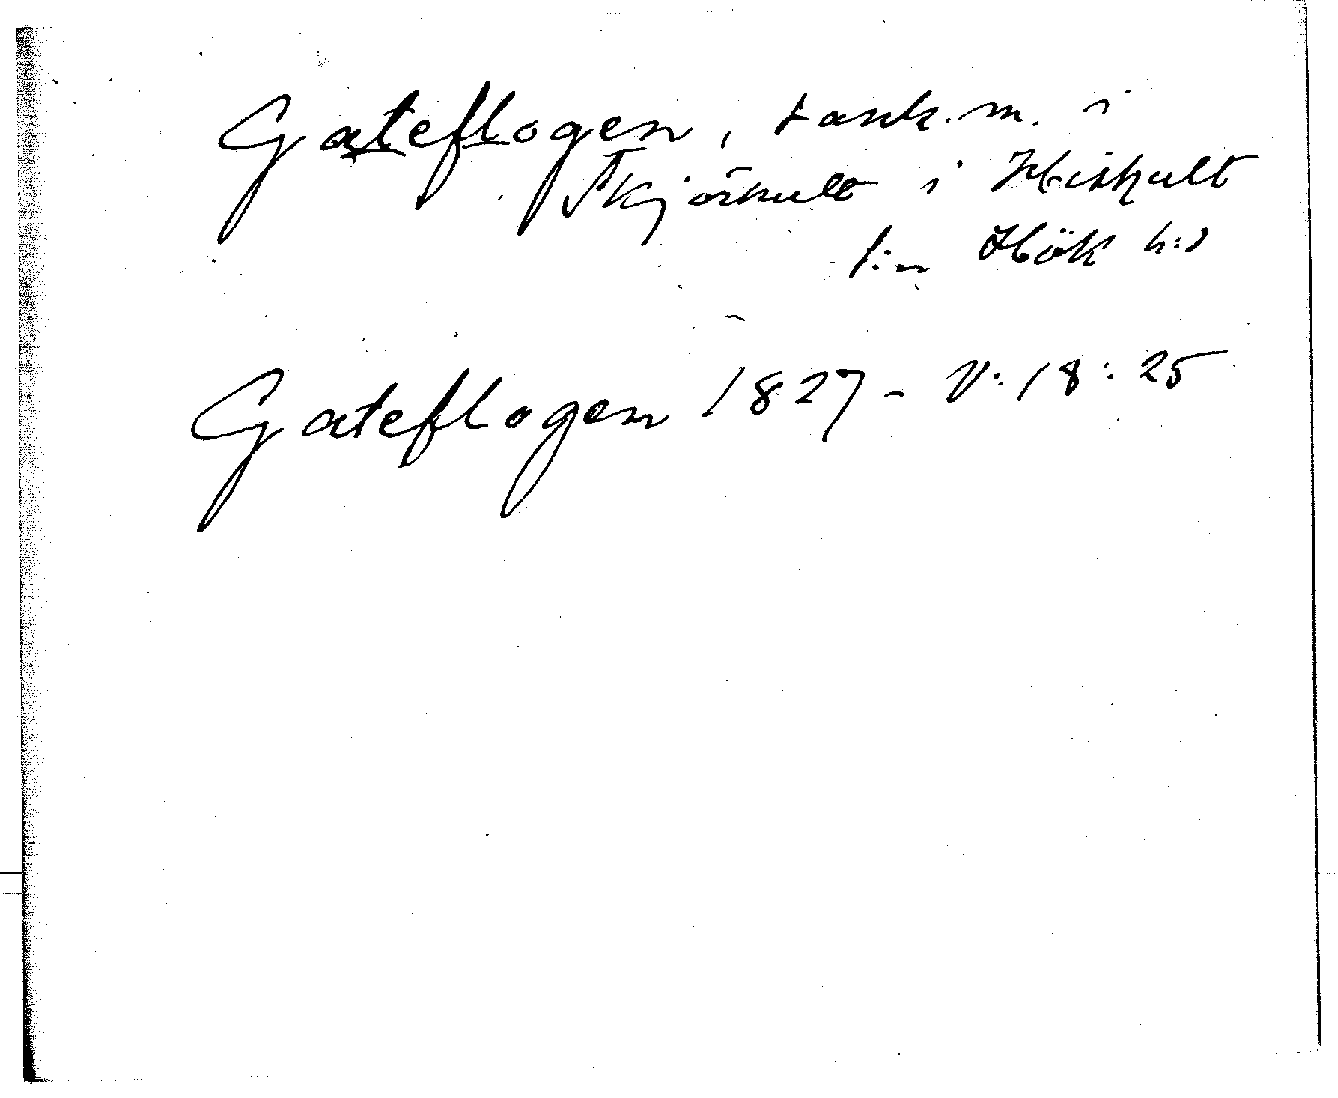 Gateflogen, sank.m. i
Skjörhult i Hishult
s:n Hök h:d
Gateflogen 1827 - V: 18: 25